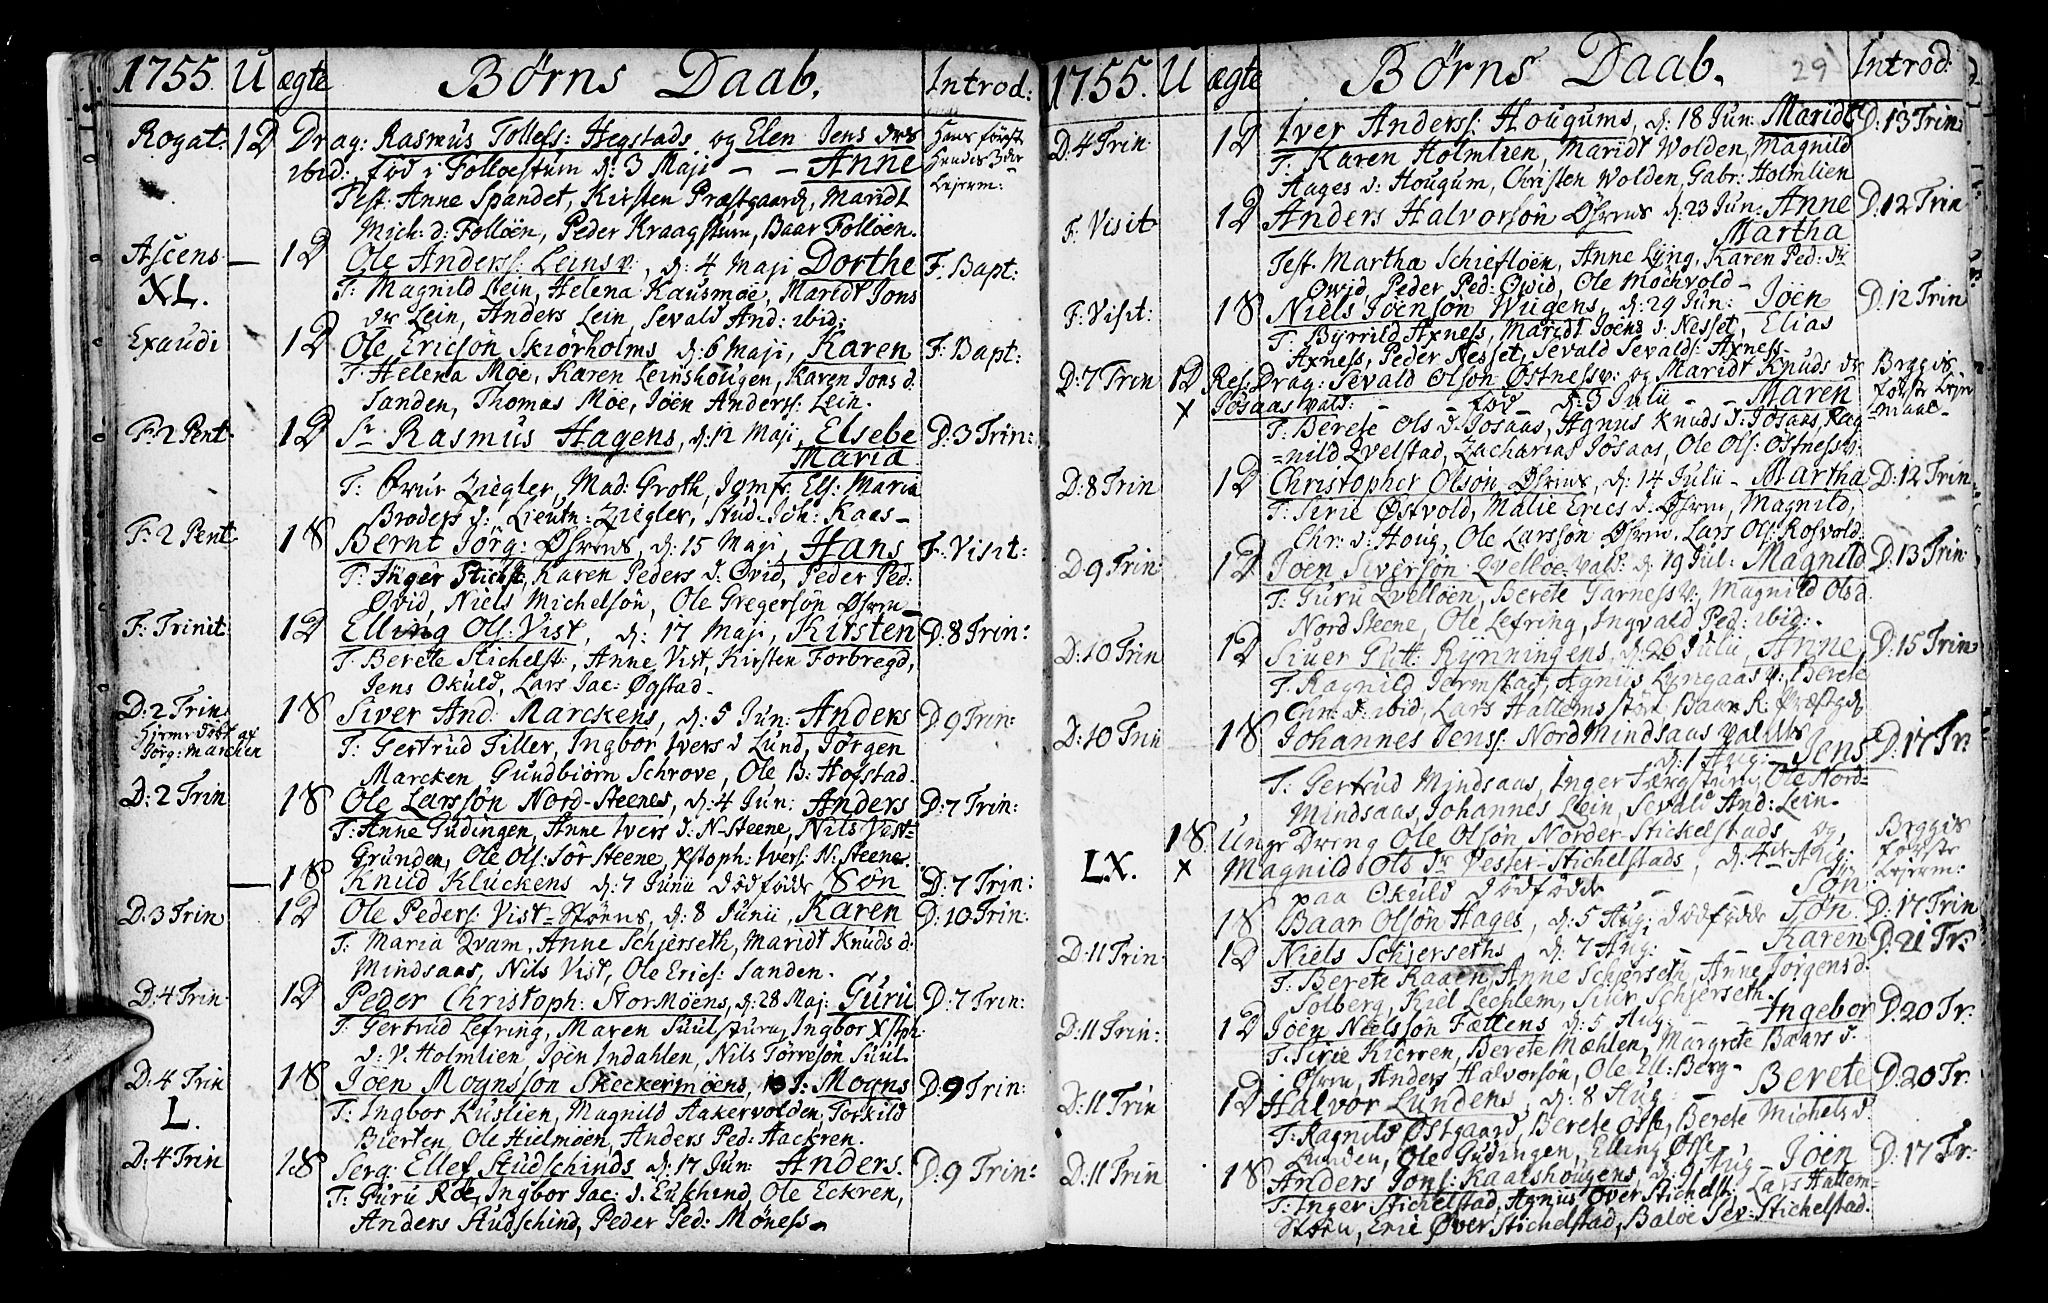 1755. U ægte Børns Daab. Introd:
Rogat. 12 Drag: Rasmus Tollefs: Hegstads og Elen Jens dr Hans første
ibid: fød i Folloestum d: 3 Maji - - Anne
Test: Anne Spandet, Kirsten Præstgaard, Maridt Lejerm:
Mich: d: Folloen, Peder Kraagstum, Baar Folloen.
Ascens 12 Ole Anders: Leinsv:, d: 4 Maji Dorthe F: Bapt:
XL. T: Magnild Lein, Helena Kausmoe, Maridt Jons
dr Lein, Anders Lein, Sevald And: ibid:
Exaudi 12 Ole Ericsøn Skiørholms d: 6 Maji, Karen F: Bapt:
T: Helena Moe, Karen Leinshougen, Karen Jons d.
Sanden, Thomas Moe, Joen Anderss: Lein.
F: 2 Pent. 12 Sr Rasmus Hagens, d: 12 Maji, Elsebe D: 3 Trin:
Maria
T: Ziegler, Mad: Groth, Jomfr: Els: Maria
Broders d:, Lieutn: Ziegler, Stud. Joh: Kaas -
F: 2 Pent. 18 Bernt Jörg: Ösrens, d: 15 Maji, Hans F: Visit:
T: Inger Stichst:, Karen Peders d: Ovid, Peder Ped:
Ovid, Niels Michelsön, Ole Gregersön Ösren
F: Trinit: 12 Elling Ols: Vist, d: 17 Maji, Kirsten D: 8 Trin:
T: Berete Stichelst:, Anne Vist, Kirsten Forbregd,
Jens Okuld, Lars Jac: Øgstad.
D: 2 Trin 18 Siver And: Marckens, d: 5 Jun: Anders D: 9 Trin:
Hjemedøbt af
Jörg: Marcken T: Gertrud Tiller, Ingbor Ivers d Lund, Jörgen
Marcken, Gundbiörn Schrove, Ole B: Hofstad.
D: 2 Trin 18 Ole Larssön Nord-Steenes, d: 4 Jun: Anders D: 7 Trin:
T: Anne Gudingen, Anne Ivers d: N-Steene, Nils Vest-
Grunden, Ole Ols: Sör Steene, Xstoph: Ivers: N: Steene.
18 Knud Kluckens d: 7 Junii dödfödde Sön D: 7 Trin:
D: 3 Trin 12 Ole Peders: Vist-Störns, d: 8 Junii, Karen D: 10 Trin:
T: Maria Qvam, Anne Schjerseth, Maridt Knuds d:
Mindsaas, Nils Vist, Ole Erics: Sanden.
D: 4 Trin: 12 Peder Christoph: Stormöens, d: 28 Maj: Guru D: 7 Trin:
T: Gertrud Lefring, Maren Suulstum, Ingbor Xstph:
d: V. Holmlien, Joen Indahlen, Nils Torresön Suul.
D: 4 Trin 18 Joen Mognssøn Skeckermöens, T: Mogns D: 9 Trin:
L. T: Ingbor Kuslien, Magnild Aakervolden, Torkild
Bierten, Ole Hielmöen, Anders Ped: Hackren.
D: 4 Trin 18 Serg: Ellef Studschinds d: 17 Jun: Anders. D: 9 Trin:
T: Guru Roe, Ingbor Jac: d. Euschind, Ole Eckren,
Anders Studschind, Peder Ped: Möness.
1755. U ægte Børns Daab. 29 Introd:
D: 4 Trin: 12 Iver Anderss: Hougums, d: 18 Jun: Maridt D: 13 Trin:
T: Karen Holmlien, Maridt Wolden, Magnild
Aages d: Hougum, Christen Wolden, Gabr: Holmlien
F: Visit 12 Anders Halvorsön Ösrens d: 23 Jun: Anne D: 12 Trin
Martha
Test. Martha Schiefloen, Anne Lyng, Karen Ped: dr
Ovid, Peder Ped: Ovid, Ole Mochvold -
F: Visit: 18 Niels Joensön Wugens, d: 29 Jun: Joen D: 12 Trin
T: Byrrild Axness, Maridt Joens d: Nesset, Elias
Axness, Peder Nesset, Sevald Sevalds: Axness.
D: 7 Trin 12 Res: Drag: Sevald Olsön Østnessv: og Maridt Knuds dr Beggis
X Josaas vald: - fød d: 3 Julii - - Maren første Lejer
maal -
T: Berete Ols d. Josaas, Agnus Knuds d: Josaas, Rag
=nild Qvelstad, Zacharias Josaas, Ole Ols: Østnessv:
D: 8 Trin 12 Christopher Olsön Ösrens, d: 14 Julii - Martha D: 12 Trin
T: Sirie Østvold, Malie Erics d: Ösren, Magnild,
Chr: d: Houg, Ole Larssön Ösren, Lars Ols: Rosvold.
D 9 Trin: 12 Joen Siversön Qvelloe-vald: d: 19 Jul: Magnild D: 13 Trin:
T: Guru Qvelloen, Berete Garnessv:, Magnild Ols d.
Nord Steene, Ole Lefring, Ingvald Ped: ibid:
D: 10 Trin 12 Siuer Gutt: Rynningens, d: 26 Julii, Anne D: 15 Trin
T: Ragnild Jermstad, Agnus Lyngaas v:, Berete
Chr: d: ibid, Lars Hallemsstör, Baar R: Præstgd.
D: 10 Trin 18 Johannes Jenss: Nord Mindsaas valds
d: 1 Aug: - Jens D: 17 Tr:
T: Gertrud Mindsaas, Inger Færgstrum, Ole Nord=
Mindsaas, Johannes Lein, Sevald And: Lein.
18. Unge Dreng Ole Olsön Norder-Stickelstads og, Beggis
LX. X Magnild Ols dr Vesser-Stichelstads, d: 4 de Aug: første
paa Okuld Dödfödde - - Sön Lejerm:
18 Baar Olsön Hages, d: 5 Aug: dödfödde Sön D: 17 Trin
D: 11 Trin: 12 Niels Schjerseths, d: 7 Aug: - - Karen D: 21 Tr:
T: Berete Raaen, Anne Schjerseth, Anne Jörgens d:
Solberg, Kiel Lechlem, Siur Schjerseth.
D: 11 Trin: 12 Joen Nielssön Fættens d: 5 Aug: - Ingebor D: 20 Tr:
T: Sirie Kierren, Berete Mæhlen, Margrete Baars d.
Ösren, Anders Halvorsön, Ole Ell: Berg -
D: 11 Trin 12 Halvor Lundens, d: 8 Aug: - Berete D: 20 Tr:
T: Ragnild Östgaard, Berete Osse, Berete Michels d.
Lunden, Ole Gudingen, Elling Osse
D: 11 Trin 18 Anders Jons: Kaalshougens, d: 9 Aug - Joen D: 17 Tr:
T: Inger Stichelstad, Agnus Over Stichelst:, Lars Hallem-
Stören, Eric Øver Stichelstad, Baloe Sev: Stichelstad.